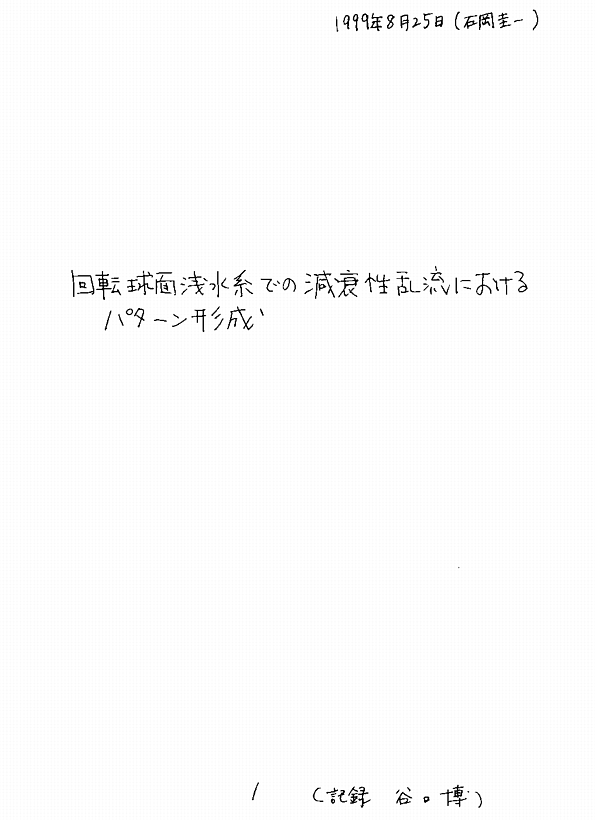 1999年8月25日(石岡圭一)
回転球面浅水系での減衰性乱流における
パターン形成
1 (記録 谷口博)